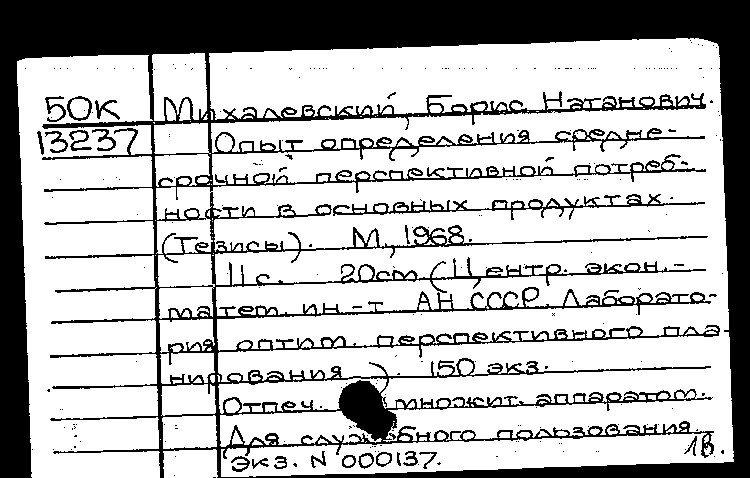 50К Михалевский, Борис Натанович.
13237 Опыт определения средне-
срочной перспективной потреб-
ности в основных продуктах.
(Тезисы). М., 1968.
11 с. 20cm (Центр. экон.-
матем. ин-т АН СССР. Лаборато-
рия оптим. перспективного пла-
нирования). 150 экз.
Отпеч. множит. аппаратом.
Для служебного пользования.
Экз. N 000137. 1В.